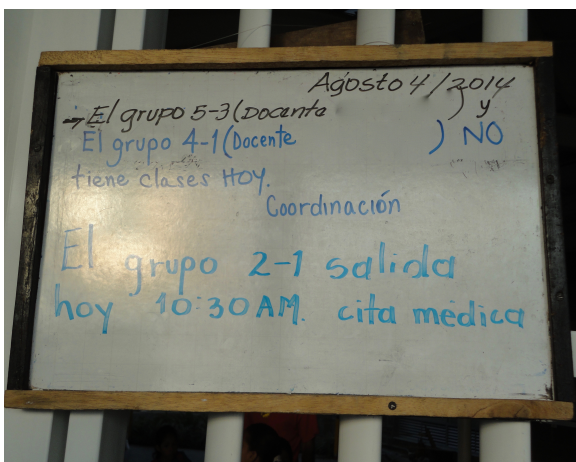 Agosto 4/2014
→ El grupo 5-3 (Docente ) y
El grupo 4-1 (Docente ) NO
tiene clases HOY.
Coordinación
El grupo 2-1 salida
hoy 10:30 AM. cita médica